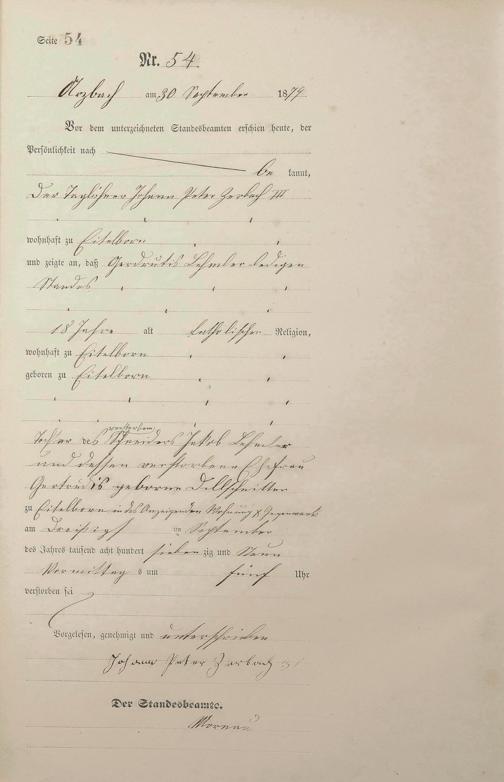 Seite 54
Nr. 54
Arzbach am 30 September 1879
Vor dem unterzeichneten Standesbeamten erschien heute, der
Persönlichkeit nach
be kannt,
Der Taglöhner Johann Peter Zerbach III
wohnhaft zu Eitelborn
und zeigte an, daß Gerdrutis Lehmler ledigen
Standes
18 Jahre alt katholischer Religion,
wohnhaft zu Eitelborn
geboren zu Eitelborn
verstorben
Tochter des Schneiders Jakob Lehmler
und dessen verstorbene Ehefrau
Gertrudis geborne
zu Eitelborn in des Anzeigenden Wohnung & Gegenwart
am Dreißigst en September
des Jahres tausend acht hundert sieben zig und Neun
Vormittag s um fünf Uhr
verstorben sei
Vorgelesen, genehmigt und unterschrieben
Johann Peter Zerbach
Der Standesbeamte.